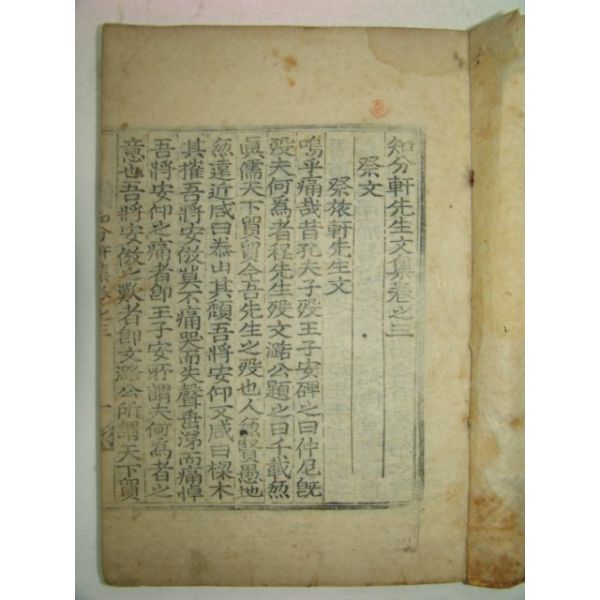 知分軒先生文集卷之三
祭文
祭旅軒先生文
嗚乎痛哉昔孔夫子歿王子安碑之曰仲尼旣
歿夫何為者程先生歿文潞公題之曰千載無
眞儒天下貿貿今吾先生之歿也人無賢愚地
無遠近咸曰泰山其頹吾將安仰又咸曰樑木
其摧吾將安倣豈不痛哭而失聲垂涕而痛悼
吾將安仰之痛者卽王子安所謂夫何為者之
意也吾將安倣之歎者卽文潞公所謂天下貿
知分軒集卷之三 一